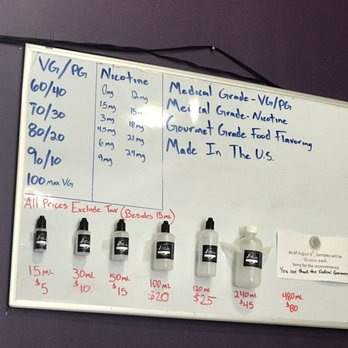 VG/PG
60/40
70/30
80/20
90/10
100 MAX VG
Nicotine
0mg 12mg
1.5mg 15mg
3mg 18mg
4.5mg 21mg
6mg 24mg
9mg
Medical Grade-VG/PG
Medical Grade-Nicotine
Gourmet Grade Food Flavoring
Made In The U.S.
All Prices Exclude Tax (Besides 15mL)
15mL
$5
30mL
$10
50mL
$15
100mL
$20
120mL
$25
240mL
$45
480mL
$80
As of August 8th, Samples will be
50 cents each.
Sorry for the inconvenience
You can thank the Federal Government